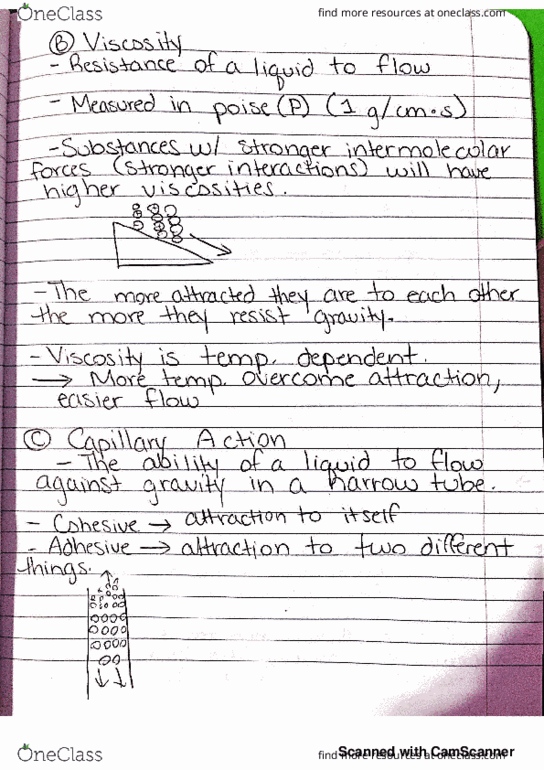 OneClass
find more resources at oneclass.com
Ⓑ Viscosity
- Resistance of a liquid to flow
- Measured in poise (P) (1 g/cm·s)
- Substances w/ stronger intermolecular
forces (stronger interactions) will have
higher viscosities.
- The more attracted they are to each other
the more they resist gravity.
- Viscosity is temp. dependent.
→ More temp. overcome attraction,
easier flow
Ⓒ Capillary Action
- The ability of a liquid to flow
against gravity in a narrow tube.
- Cohesive → attraction to itself
- Adhesive → attraction to two different
things.
OneClass
find more resources at oneclass.com
Scanned with CamScanner